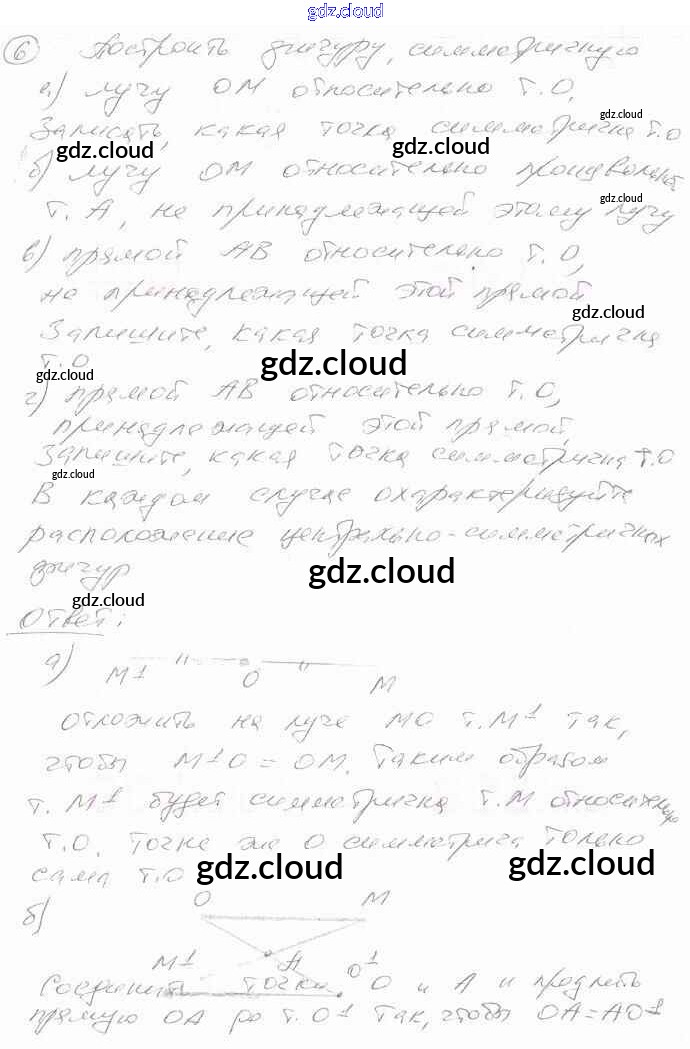 gdz.cloud
6 Построить фигуру, симметричную
а) лучу ОМ относительно т.О,
Записать, какая точка симметрична т.О
gdz.cloud
gdz.cloud
gdz.cloud
б) лучу ОМ относительно
gdz.cloud
т. А, не принадлежащей этому лучу
в) прямой АВ относительно т.О,
не принадлежащей этой прямой
gdz.cloud
Запишите, какая точка симметрична
т.О
gdz.cloud
gdz.cloud
г) прямой АВ относительно т.О,
принадлежащей этой прямой,
Запишите, какая точка симметрична т.О
gdz.cloud
В каждом случае охарактеризуйте
расположение центрально-симметричных
фигур
gdz.cloud
gdz.cloud
Ответ:
а)
М1 О М
отложить на луче МО т.М1 так,
чтобы М1О = ОМ. Таким образом
т. М1 будет симметрична т.М относительно
т.О. Точке же О симметрична только
сама т.О
gdz.cloud
gdz.cloud
б)
О М
М1 А О1
Соединить точки О и А и продлить
прямую ОА до т.О1 так, чтобы ОА=АО1